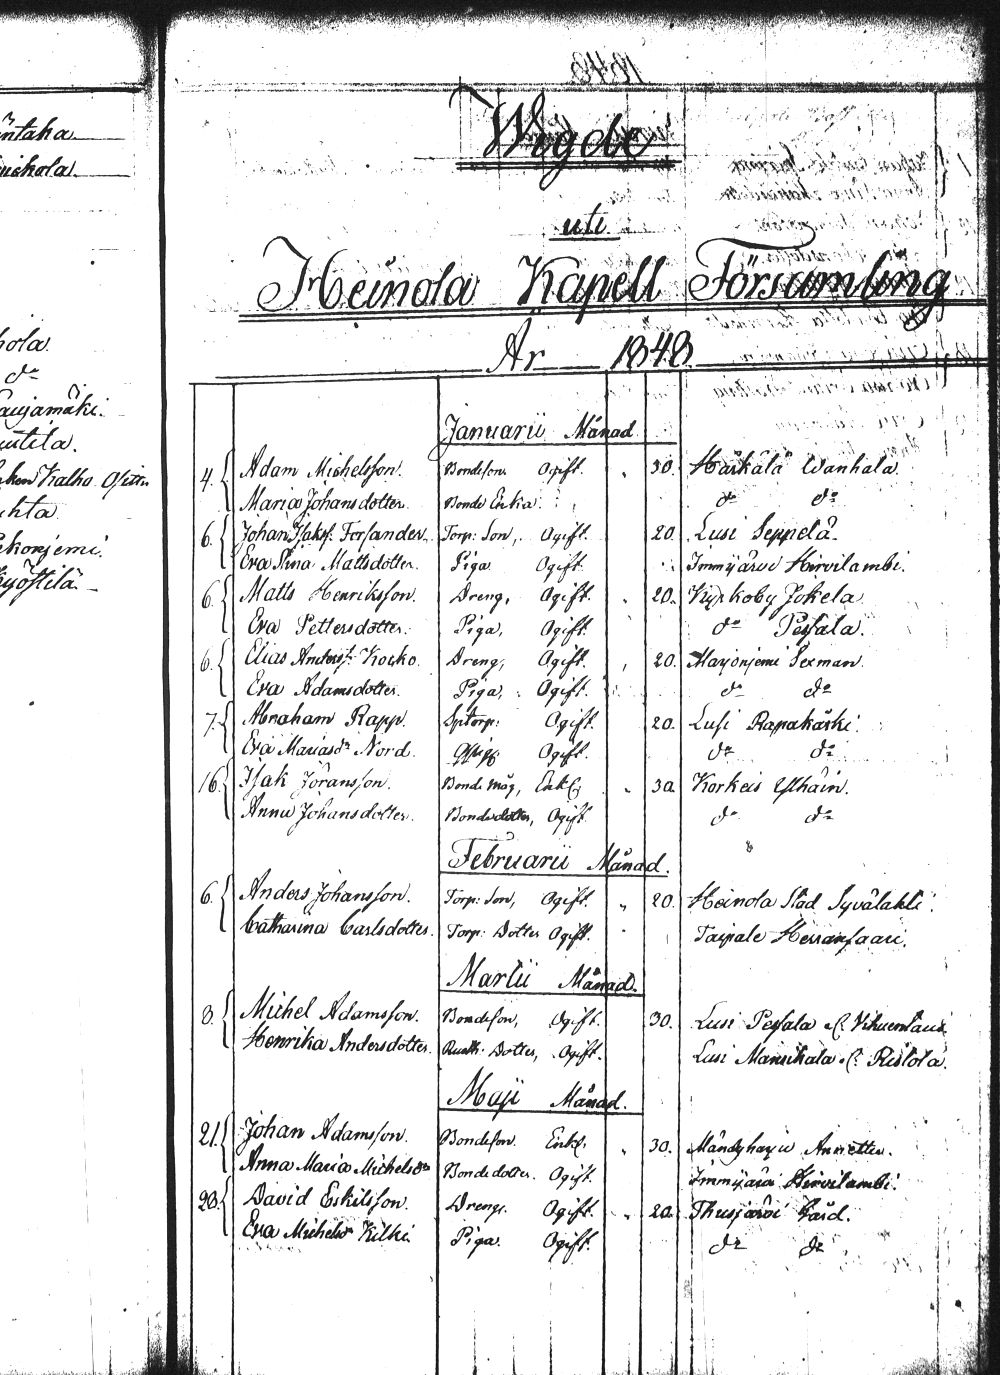 ntaha
niskola
Wigde
uti
Heinola Kapell Församling
År 1848.
hola.
do
aujamäki.
utila.
Kalho
uhta
ekonjemi.
Kyöstilä.
Januarii Månad
4. Adam Michelsson. Bondeson. Ogift. 30. Härkälä Wanhala
Maria Johansdotter. Bonde Enka. do do
6. Johan Isaksf. Forsander. Torp: Son, Ogift. 20. Lusi Seppelä.
Eva Stina Mattsdotter. Piga Ogift. Immjärvi Hirvilambi.
6. Matts Henriksson. Dreng, Ogift. 20. Kyrkoby Jokela
Eva Pettersdotter. Piga, Ogift. do Pessala.
6. Elias Andersf. Korko. Dreng, Ogift. 20. Marjonjemi Sexman.
Eva Adamsdotter. Piga, Ogift. do do
7. Abraham Rapp. Sptorp: Ogift. 20. Lusi Rapakäski.
Eva Mariasdr Nord. Ogift. do do
16. Isak Jöransson. Bonde måg, Enkl. 30. Korkeis Ylhäin.
Anna Johansdotter. Bondedotter, Ogift. do do
Februarii Månad.
6. Anders Johansson. Torp: Son, Ogift. 20. Heinola Stad Syvälahti.
Catharina Carlsdotter. Torp: Dotter Ogift. Taipale Herransaari.
Martii Månad.
3. Michel Adamsson. Bondeson, Ogift. 30. Lusi Pessala
Henrika Andersdotter. Rusth: Dotter, Ogift. Lusi Mansikala Ristola.
Maji Månad.
21. Johan Adamsson. Bondeson. Enkl. 30.
Anna Maria Michelsdr Bondedotter. Ogift. Immjärvi Hirvilambi.
28. David Eskilsson. Dreng. Ogift. 20. Thusjärvi Gård.
Eva Michelsdr Kilki. Piga. Ogift. do do